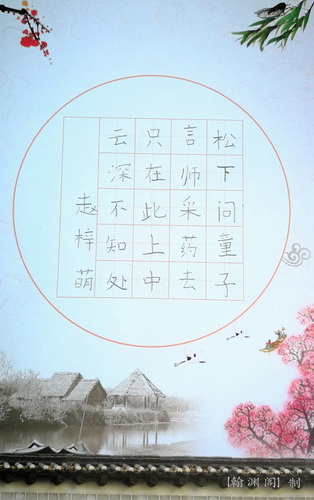 松下问童子
言师采药去
只在此上中
云深不知处
赵梓萌
[翰渊阁] 制